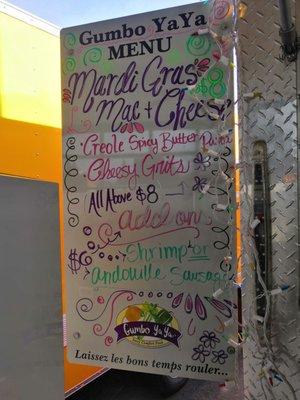 Gumbo YaYa
MENU
Mardi Gras
Mac + Cheese
$8
Creole Spicy Butter
Cheesy Grits
All Above $8
add on
$6
Shrimp or
Andouille Sausage
Gumbo YaYa
Laissez les bons temps rouler...